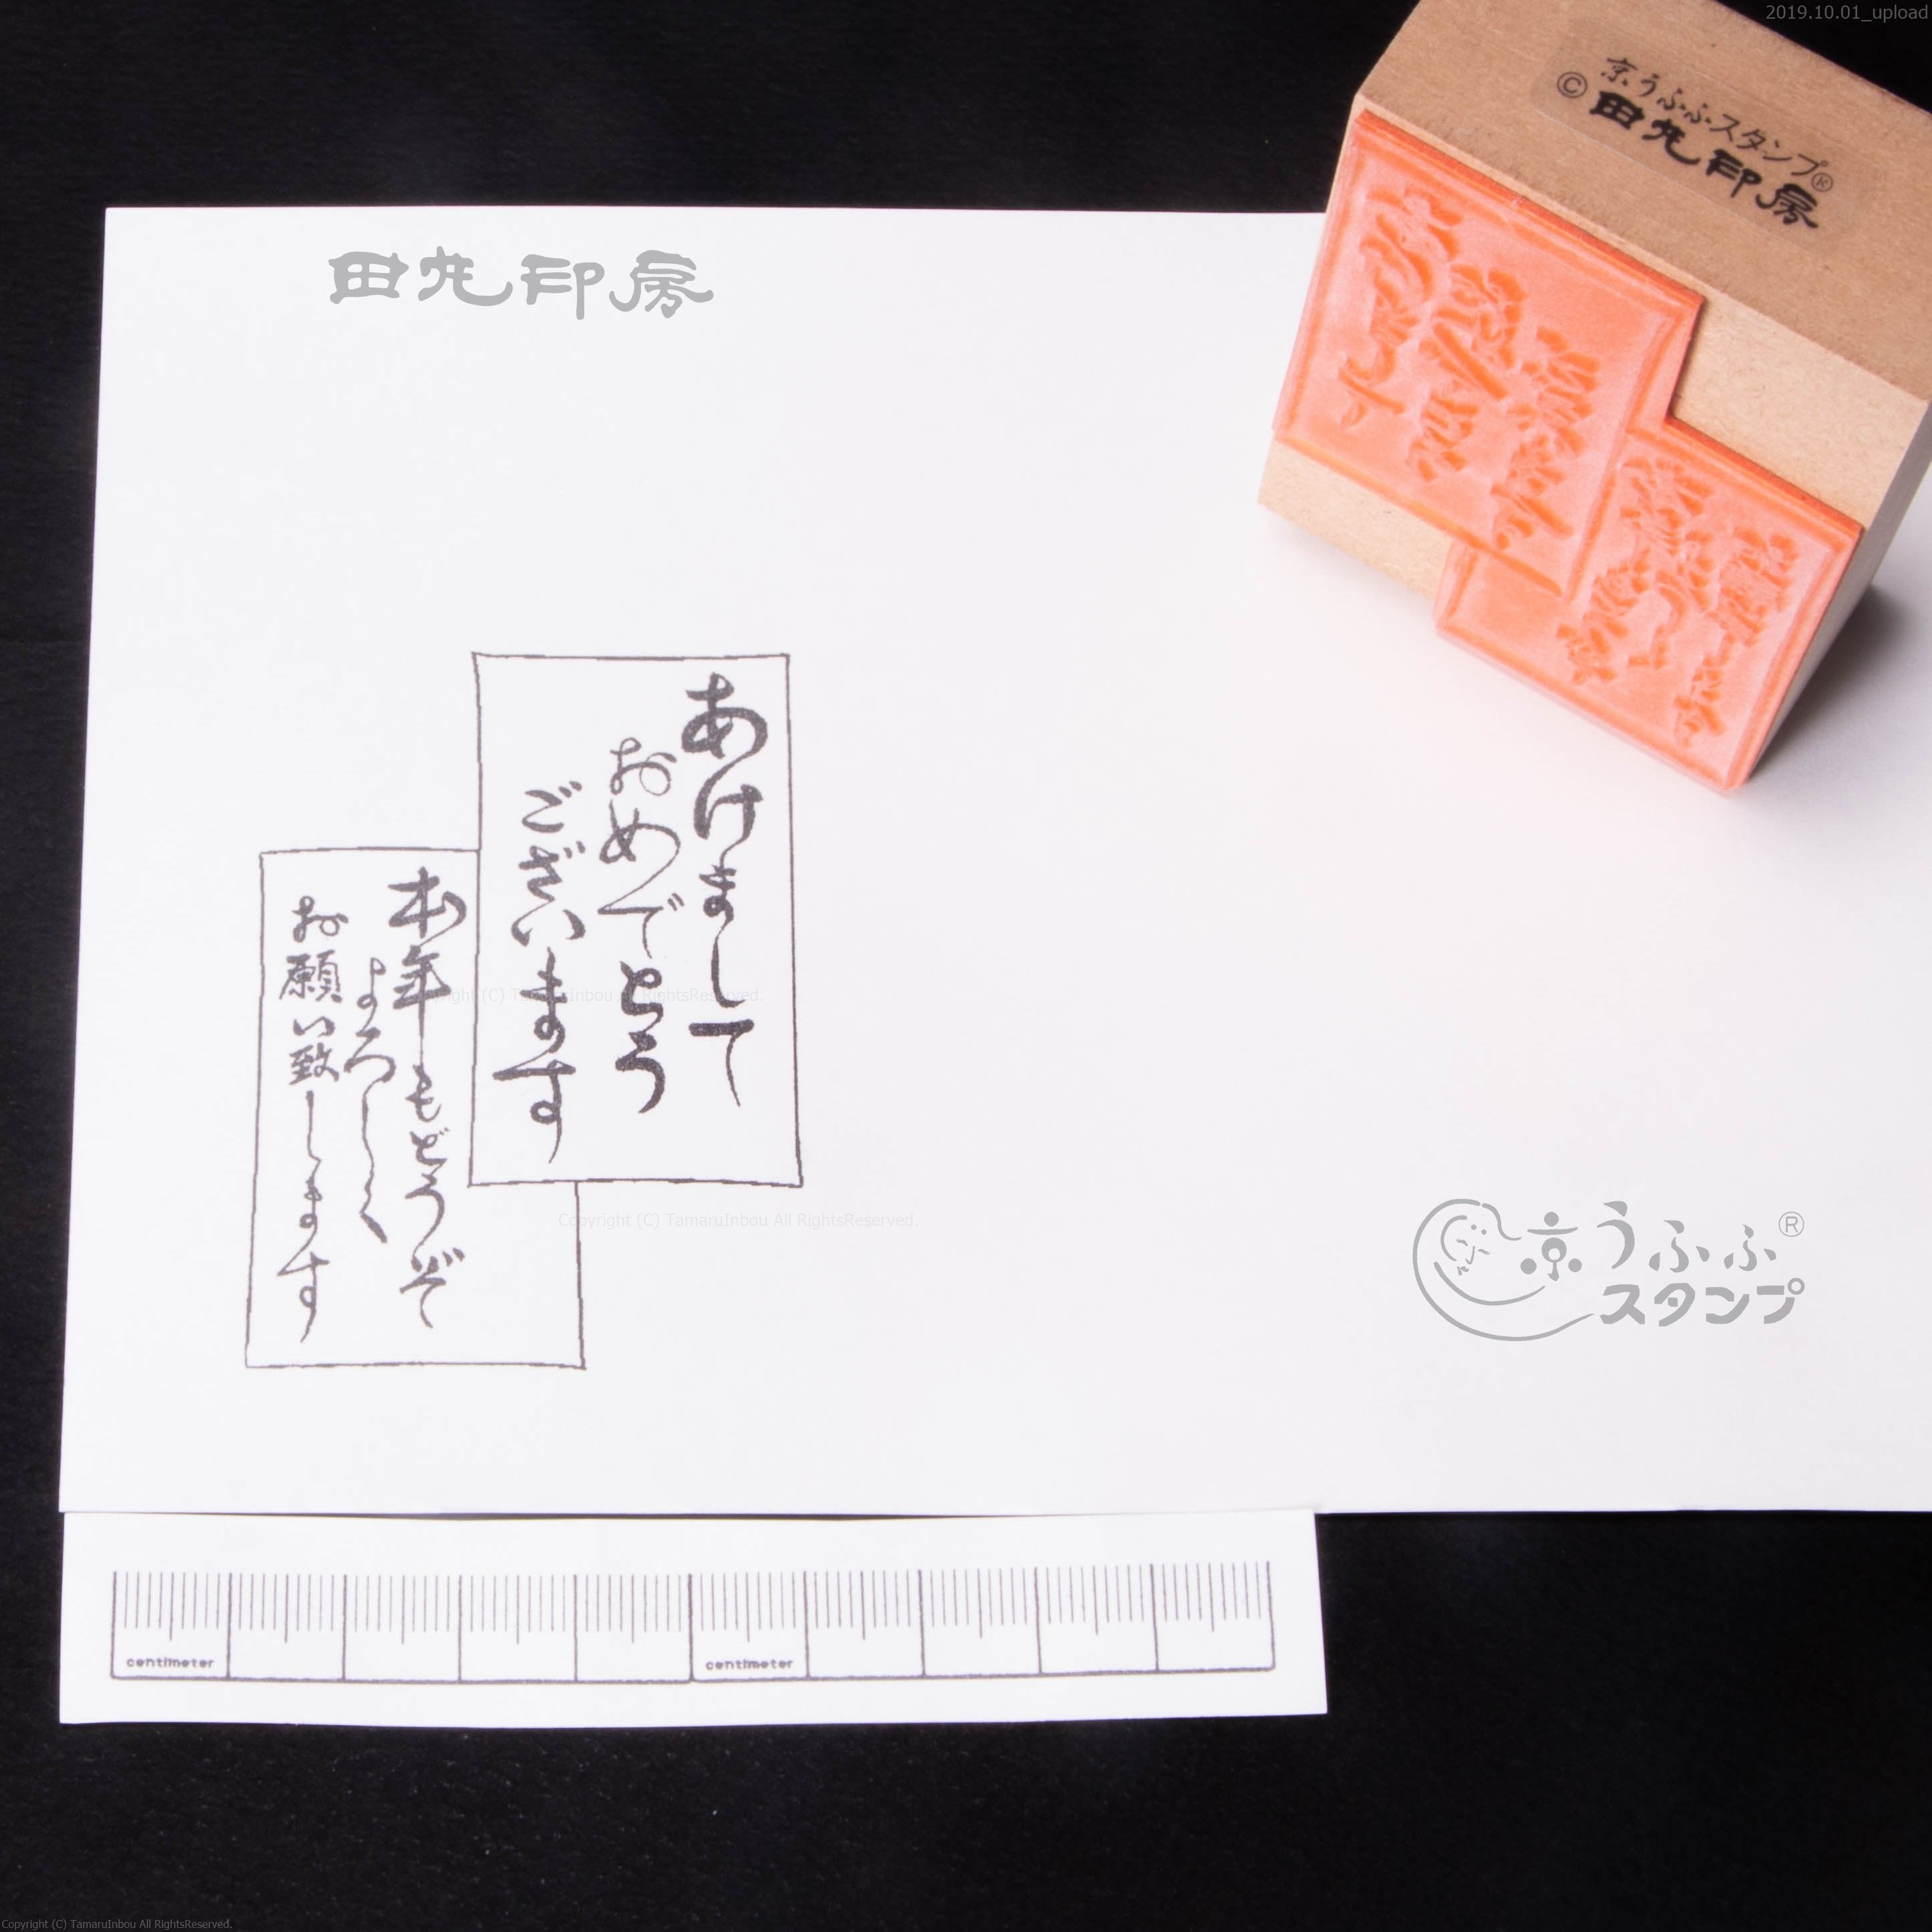 2019.10.01_upload
京うふふスタンプ®
©田丸印房
田丸印房
あけまして
おめでとう
ございます
本年もどうぞ
よろしく
お願い致します
Copyright (C) TamaruInbou All RightsReserved.
Copyright (C) TamaruInbou All RightsReserved.
京うふふ®
スタンプ
centimeter
centimeter
Copyright (C) TamaruInbou All RightsReserved.